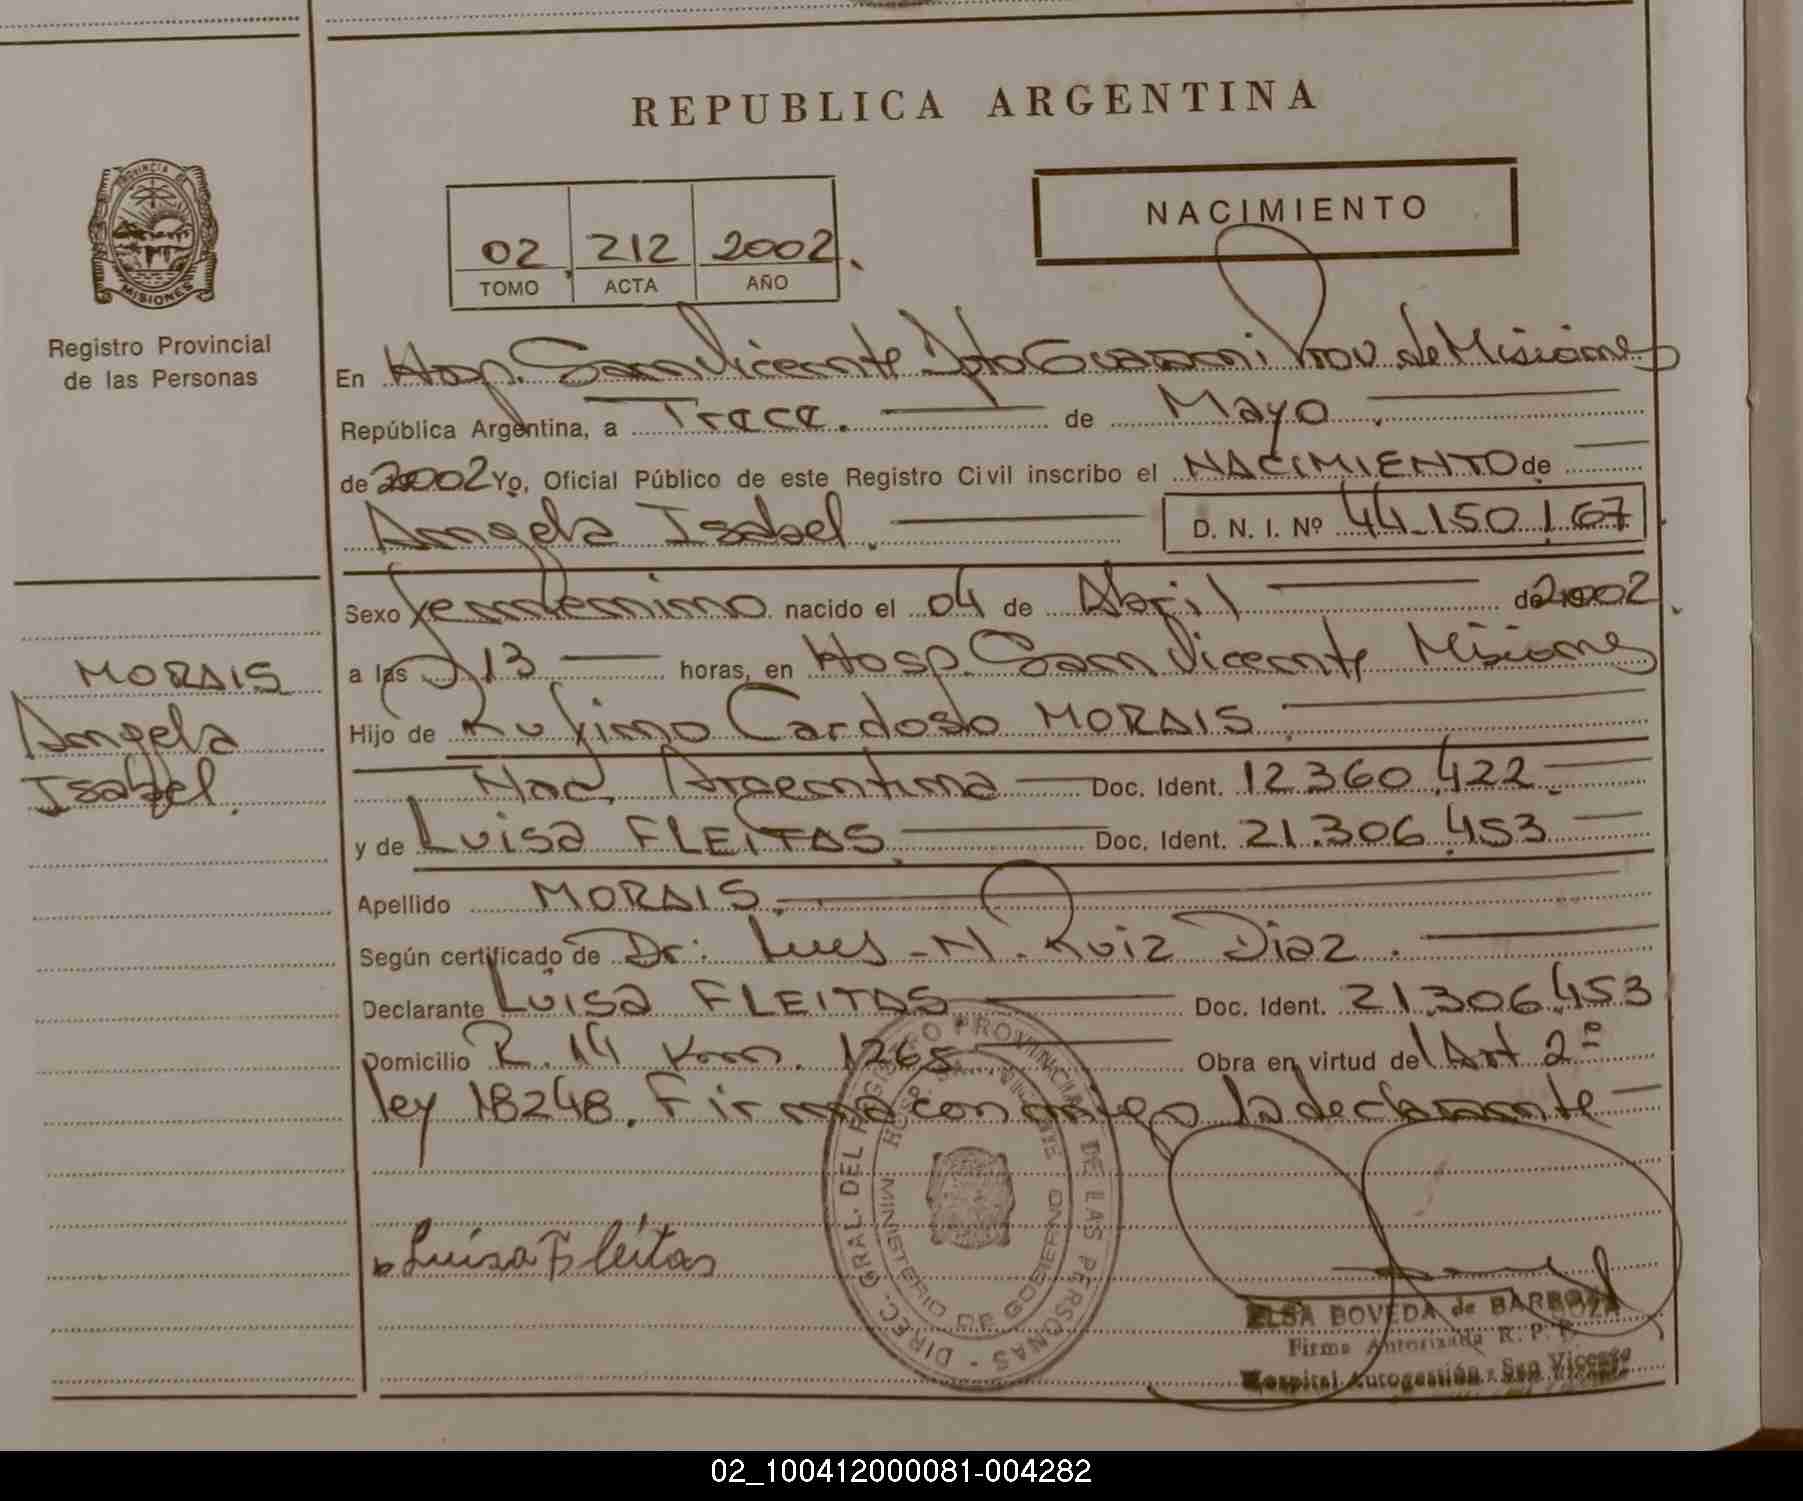 REPUBLICA ARGENTINA
PROVINCIA DE
MISIONES
Registro Provincial
de las Personas
NACIMIENTO
02 212 2002.
TOMO ACTA AÑO
En Hosp. San Vicente Dpto Guarani Prov. de Misiones
República Argentina, a Trece. de Mayo.
de 2002 Yo, Oficial Público de este Registro Civil inscribo el NACIMIENTO de
Angela Isabel. D. N. I. Nº 44.150.167
Sexo femenino nacido el 04 de Abril de 2002.
MORAIS
Angela
Isabel.
a las 13 horas, en Hosp. San Vicente Misiones
Hijo de Rufino Cardoso MORAIS.
Nac. Argentina Doc. Ident. 12.360.422.
y de Luisa FLEITAS. Doc. Ident. 21.306.453
Apellido MORAIS.
Según certificado de Dr: Luis N. Ruiz Diaz.
Declarante Luisa FLEITAS Doc. Ident. 21.306.453
Domicilio R. 14 Km. 1265 Obra en virtud del Art 2º
ley 18248. Firma con migo la declarante
DIREC. GRAL. DEL REGISTRO PROVINCIAL DE LAS PERSONAS
HOSP. SAN VICENTE
MINISTERIO DE GOBIERNO
Luisa Fleitas
ELSA BOVEDA de BARBOZA
Firma Autorizada R. P. P.
Hospital Autogestión - San Vicente
02_100412000081-004282